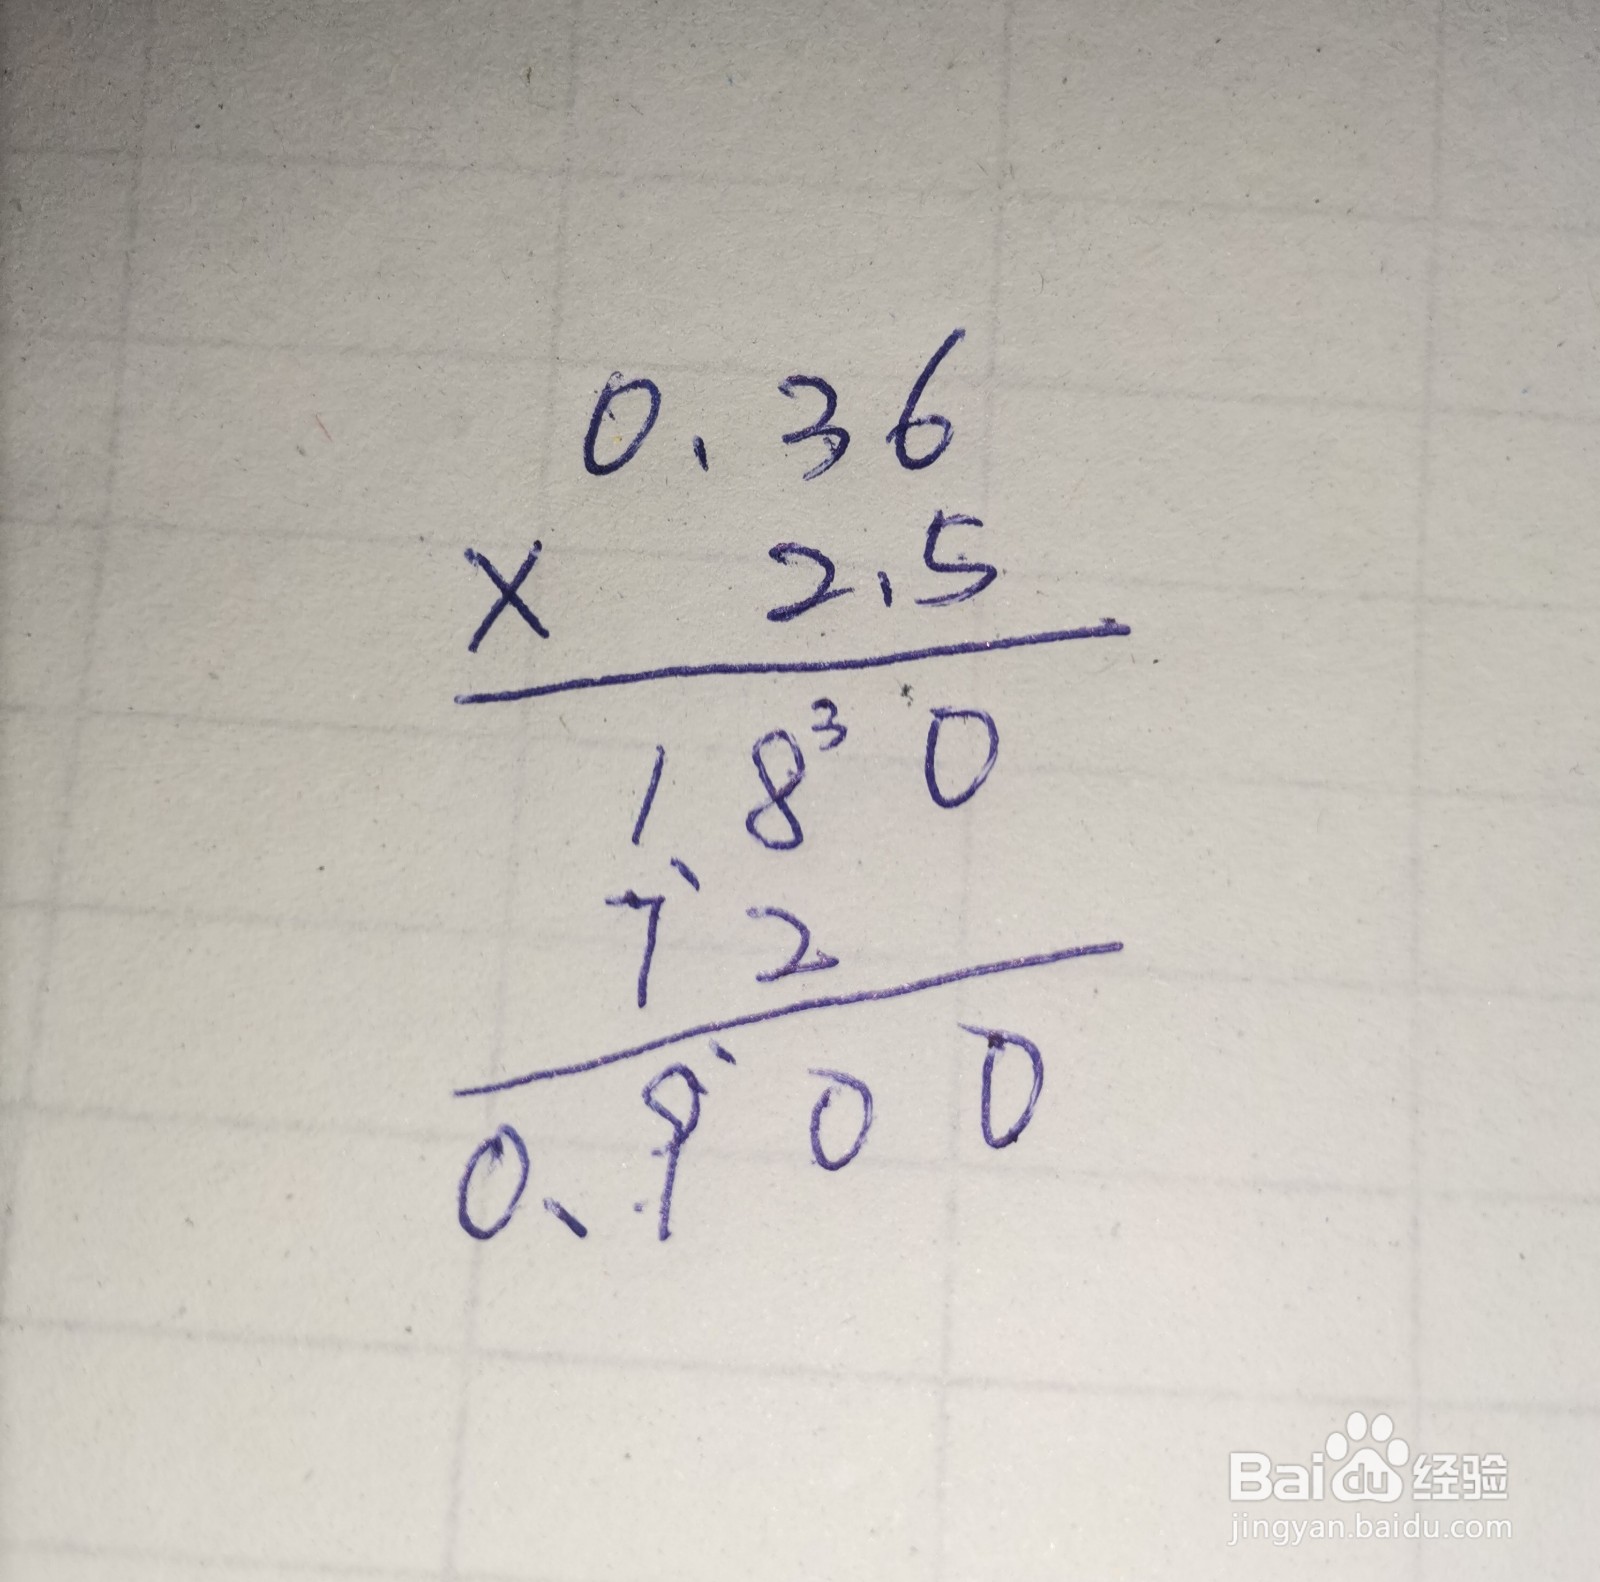 0.36
× 2.5
18³0
72
0.900
Bai du 经验
jingyan.baidu.com